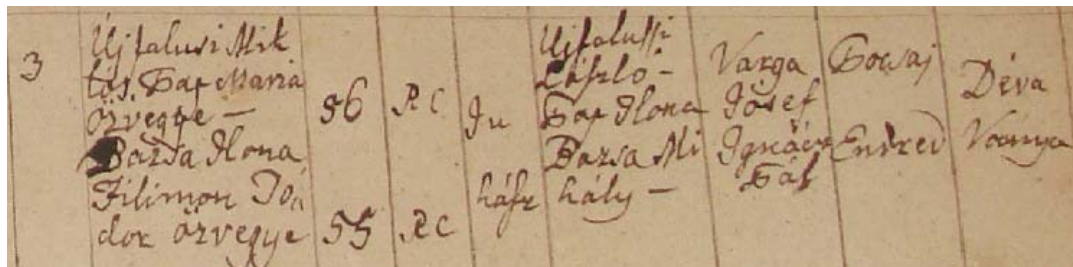 3
Újfalusi Mik
lós. Gap Maria
özvegye —
Bazsa Ilona
Filimon Tó
dor özvegye
56
R C
55
R C
Ju
hász
Újfalussi
László —
Gap Ilona
Bazsa Mi
hály —
Varga
Jósef
Ignácz
Gál
Bocsaj
Endred
Déva
Ványa